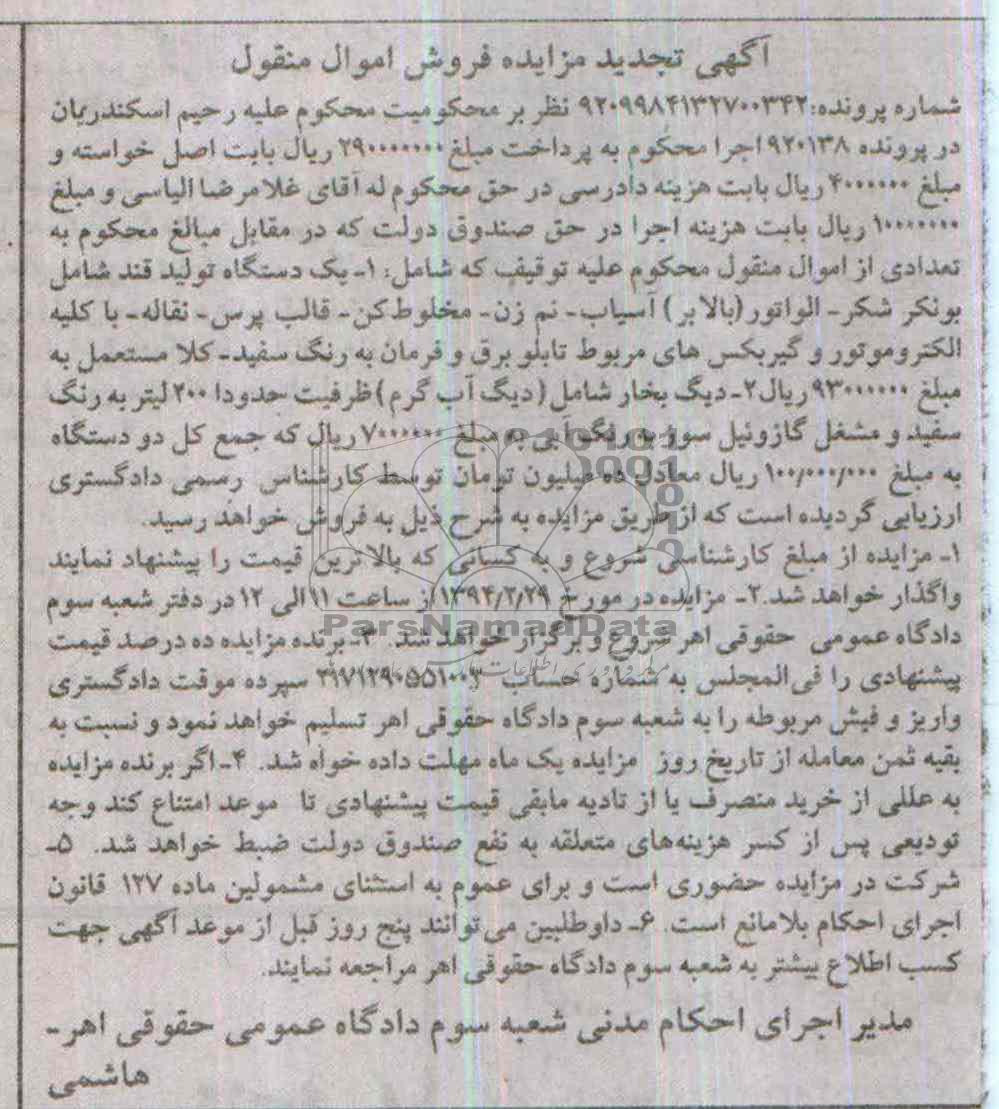 آگهی تجدید مزایده فروش اموال منقول
شماره پرونده: ۹۲۰۹۹۸۴۱۳۲۷۰۰۳۴۲ نظر بر محکومیت محکوم علیه رحیم اسکندریان
در پرونده ۹۲۰۱۳۸ اجرا محکوم به پرداخت مبلغ ۲۹۰۰۰۰۰۰۰ ریال بابت اصل خواسته و
مبلغ ۴۰۰۰۰۰۰ ریال بابت هزینه دادرسی در حق محکوم له آقای غلامرضا الیاسی و مبلغ
۱۰۰۰۰۰۰۰ ریال بابت هزینه اجرا در حق صندوق دولت که در مقابل مبالغ محکوم به
تعدادی از اموال منقول محکوم علیه توقیف که شامل: ۱- یک دستگاه تولید قند شامل
بونکر شکر- الواتور (بالابر) آسیاب- نم زن- مخلوط کن- قالب پرس- نقاله- با کلیه
الکتروموتور و گیربکس های مربوط تابلو برق و فرمان به رنگ سفید- کلا مستعمل به
مبلغ ۹۳۰۰۰۰۰۰ ریال ۲- دیگ بخار شامل (دیگ آب گرم) ظرفیت حدودا ۲۰۰ لیتر به رنگ
سفید و مشغل گازوئیل سوز به رنگ آبی به مبلغ ۷۰۰۰۰۰۰ ریال که جمع کل دو دستگاه
به مبلغ ۱۰۰/۰۰۰/۰۰۰ ریال معادل ده میلیون تومان توسط کارشناس رسمی دادگستری
ارزیابی گردیده است که از طریق مزایده به شرح ذیل به فروش خواهد رسید.
۱- مزایده از مبلغ کارشناسی شروع و به کسانی که بالاترین قیمت را پیشنهاد نمایند
واگذار خواهد شد. ۲- مزایده در مورخ ۱۳۹۴/۲/۲۹ از ساعت ۱۱ الی ۱۲ در دفتر شعبه سوم
دادگاه عمومی حقوقی اهر شروع و برگزار خواهد شد. ۳- برنده مزایده ده درصد قیمت
پیشنهادی را فی‌المجلس به شماره حساب سپرده موقت دادگستری
واریز و فیش مربوطه را به شعبه سوم دادگاه حقوقی اهر تسلیم خواهد نمود و نسبت به
بقیه ثمن معامله از تاریخ روز مزایده یک ماه مهلت داده خواه شد. ۴- اگر برنده مزایده
به عللی از خرید منصرف یا از تادیه مابقی قیمت پیشنهادی تا موعد امتناع کند وجه
تودیعی پس از کسر هزینه‌های متعلقه به نفع صندوق دولت ضبط خواهد شد. ۵-
شرکت در مزایده حضوری است و برای عموم به استثنای مشمولین ماده ۱۲۷ قانون
اجرای احکام بلامانع است. ۶- داوطلبین می‌توانند پنج روز قبل از موعد آگهی جهت
کسب اطلاع بیشتر به شعبه سوم دادگاه حقوقی اهر مراجعه نمایند.
مدیر اجرای احکام مدنی شعبه سوم دادگاه عمومی حقوقی اهر-
هاشمی
ParsNamadData